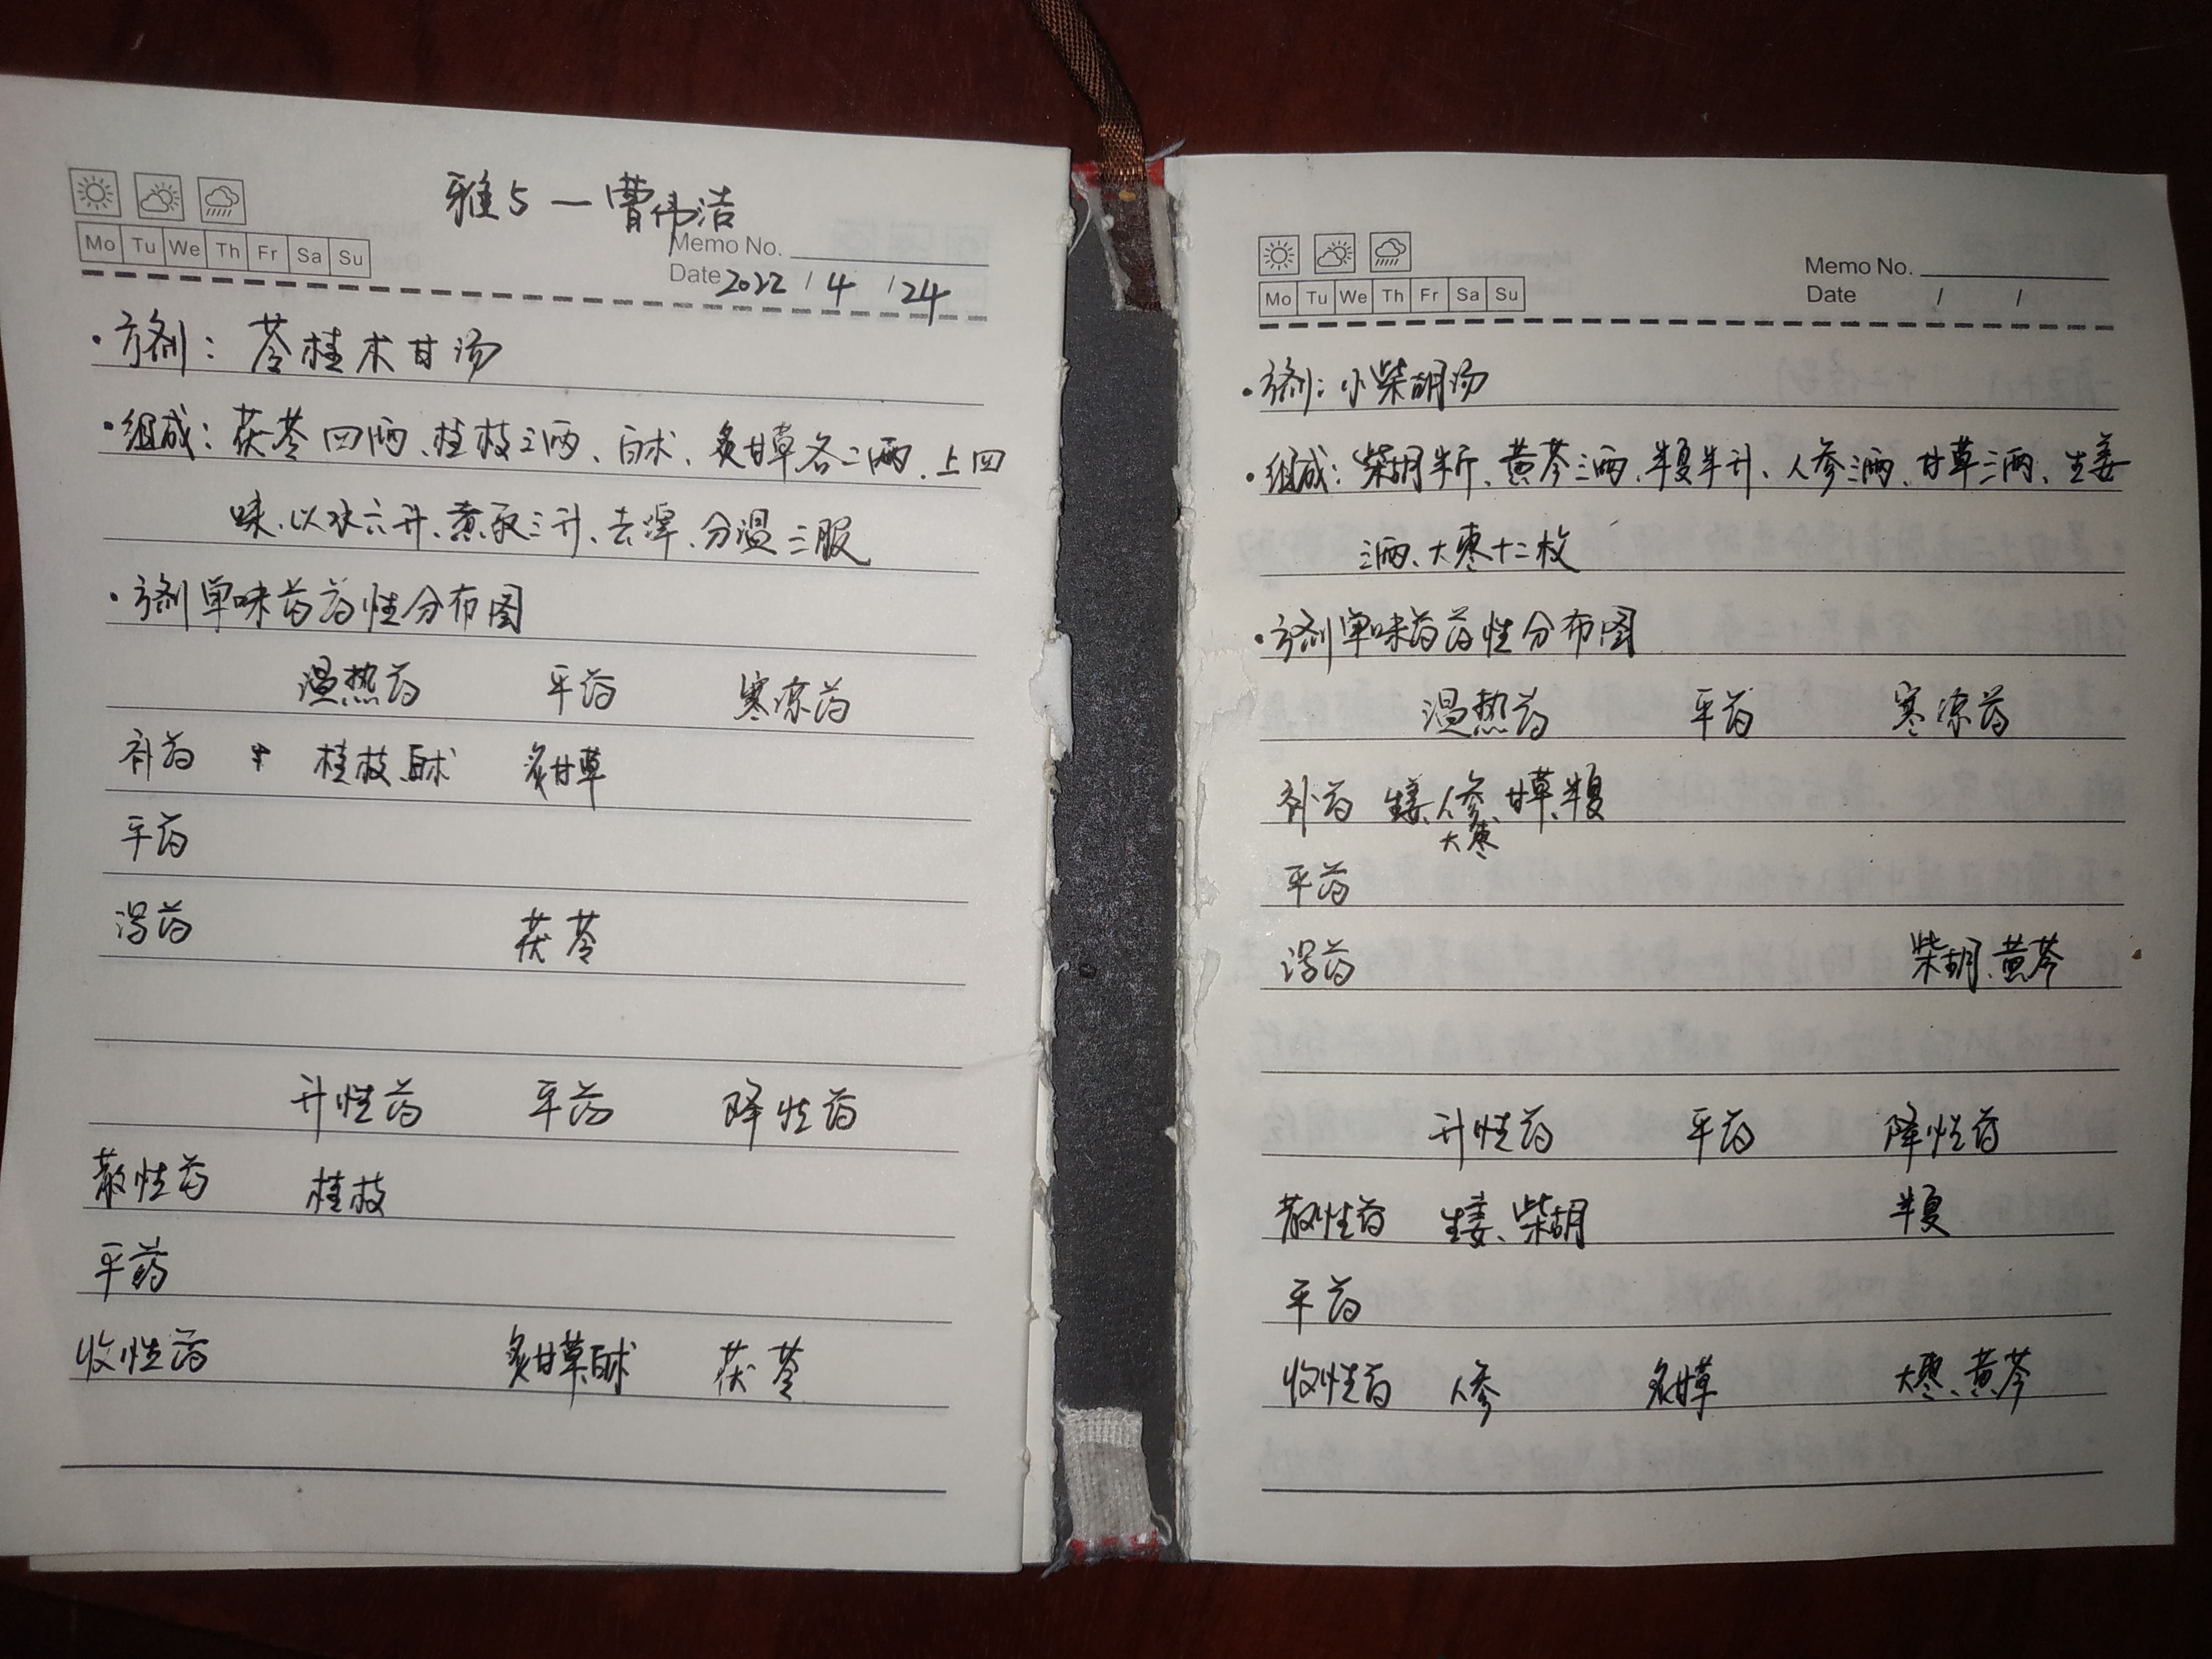 雅5—曹伟洁
Mo Tu We Th Fr Sa Su
Memo No.
Date 2022 / 4 / 24
·方剂：苓桂术甘汤
·组成：茯苓四两、桂枝三两、白术、炙甘草各二两、上四
味、以水六升、煮取三升、去滓、分温三服
·方剂单味药药性分布图
温热药 平药 寒凉药
补药 桂枝、白术 炙甘草
平药
泻药 茯苓
升性药 平药 降性药
散性药 桂枝
平药
收性药 炙甘草、白术 茯苓
Mo Tu We Th Fr Sa Su
Memo No.
Date / /
·方剂：小柴胡汤
·组成：柴胡半斤、黄芩三两、半夏半升、人参三两、甘草三两、生姜
三两、大枣十二枚
·方剂单味药药性分布图
温热药 平药 寒凉药
补药 生姜、人参、甘草、半夏
大枣
平药
泻药 柴胡、黄芩
升性药 平药 降性药
散性药 生姜、柴胡 半夏
平药
收性药 人参 炙甘草 大枣、黄芩